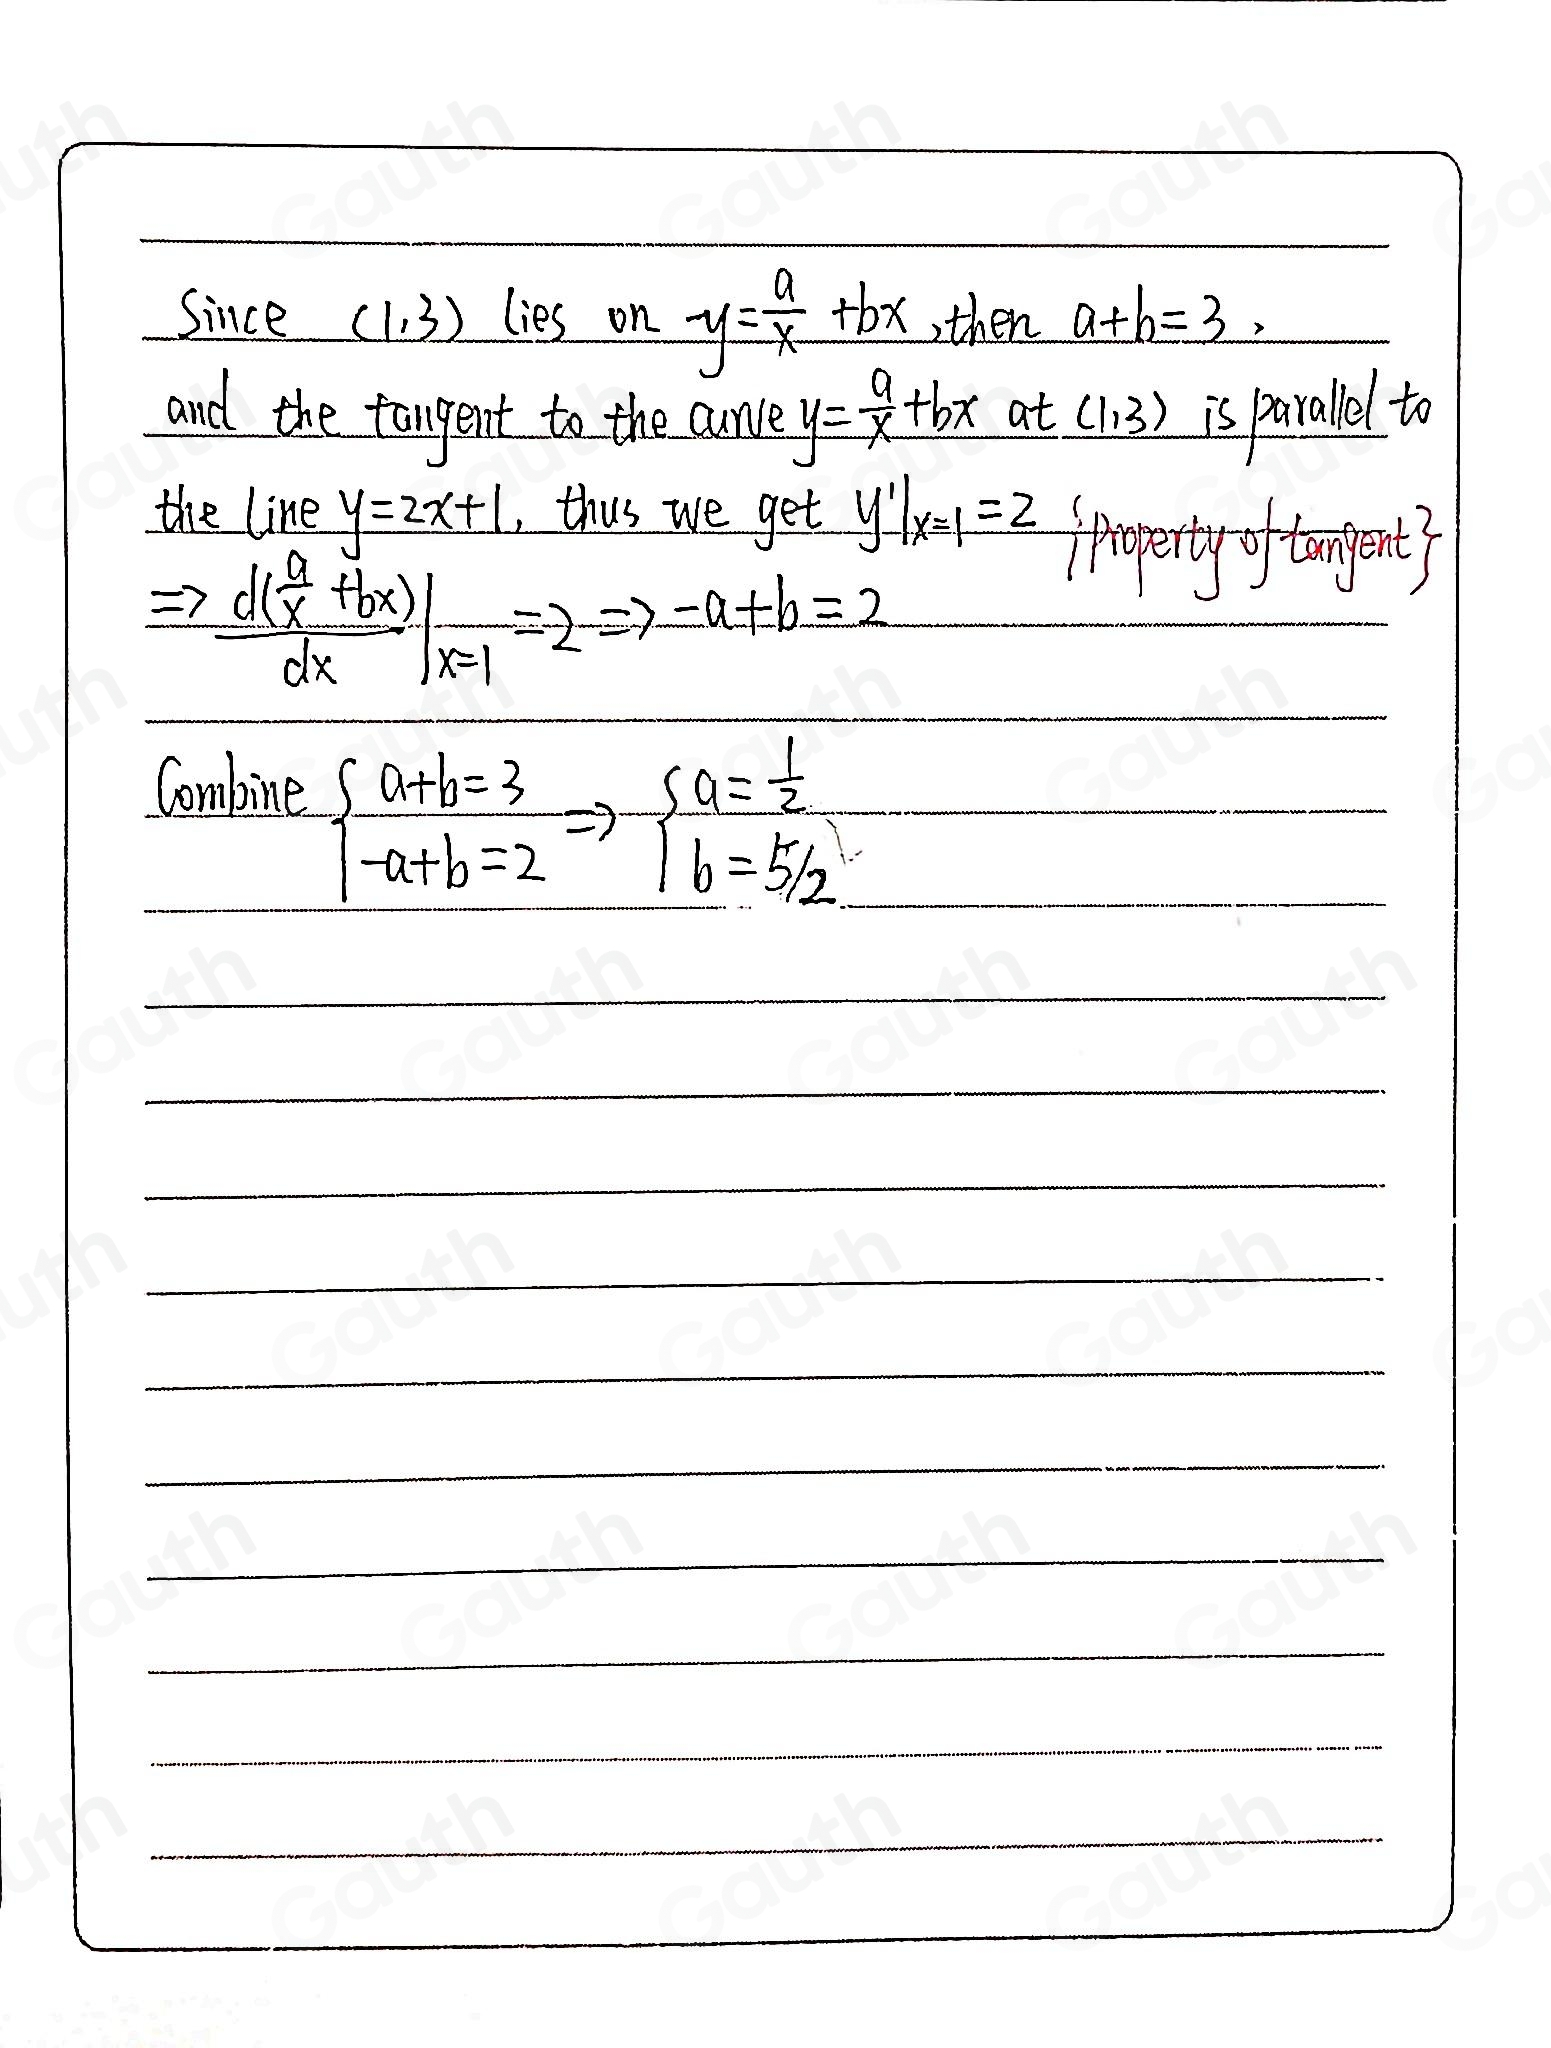 Since (1,3) lies on y=a/x +bx, then a+b=3,
and the tangent to the curve y=a/x+bx at (1,3) is parallel to
the line y=2x+1, thus we get y'|x=1 =2 {property of tangent}
=> d(a/x +bx)/dx |x=1 =2 => -a+b=2
Combine { a+b=3 => { a=1/2
-a+b=2 b=5/2
Gauth